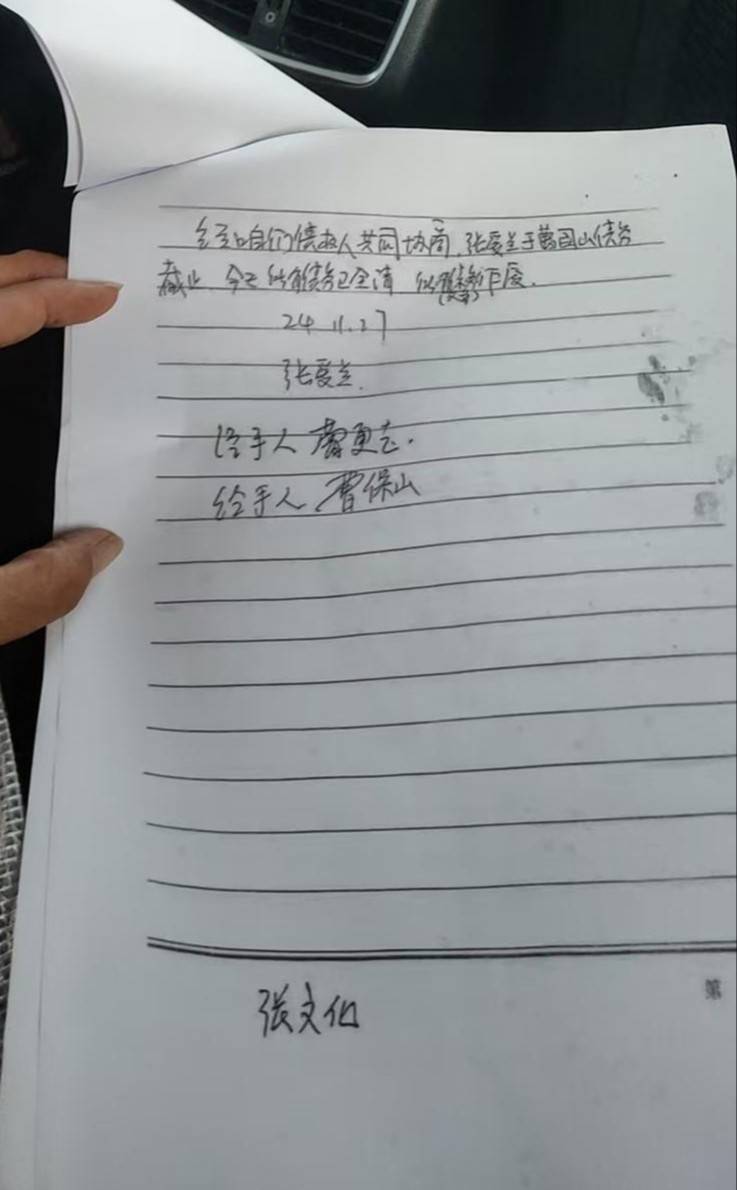 经 我们债权人共同协商，张爱兰于曹国山债务
截止 今天 所有债务已全清 以 作废.
24 11.27
张爱兰.
经手人 曹更志.
经手人 曹保山
张文仙
第